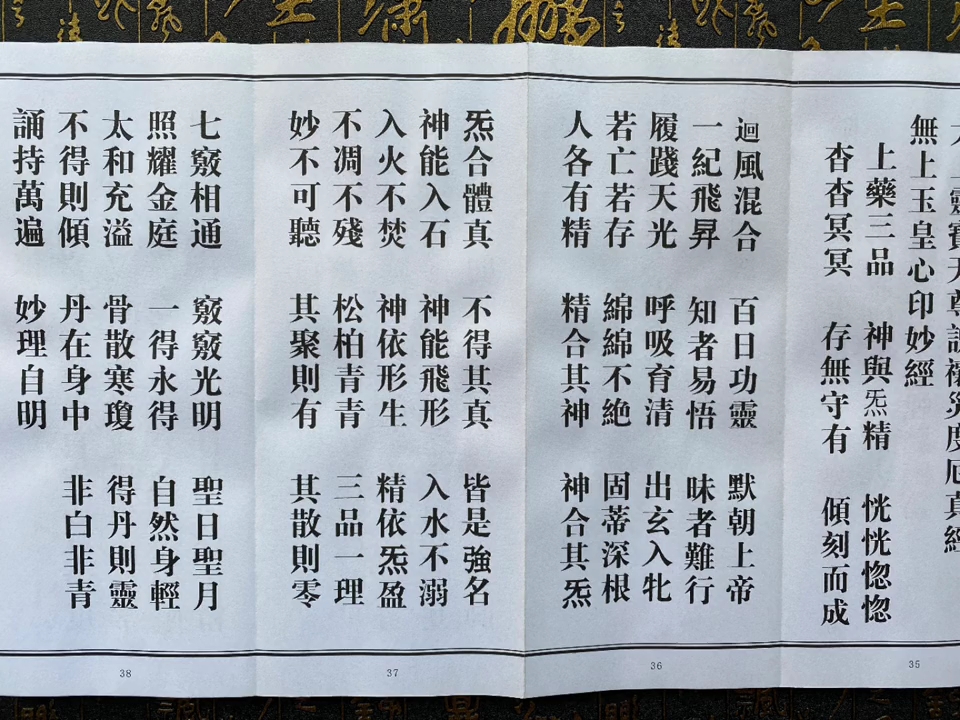 太上靈寶天尊說禳災度厄真經
無上玉皇心印妙經
上藥三品 神與炁精 恍恍惚惚
杳杳冥冥 存無守有 傾刻而成
35
迴風混合 百日功靈 默朝上帝
一紀飛昇 知者易悟 昧者難行
履踐天光 呼吸育清 出玄入牝
若亡若存 綿綿不絶 固蒂深根
人各有精 精合其神 神合其炁
36
炁合體真 不得其真 皆是強名
神能入石 神能飛形 入水不溺
入火不焚 神依形生 精依炁盈
不凋不殘 松柏青青 三品一理
妙不可聽 其聚則有 其散則零
37
七竅相通 竅竅光明 聖日聖月
照耀金庭 一得永得 自然身輕
太和充溢 骨散寒瓊 得丹則靈
不得則傾 丹在身中 非白非青
誦持萬遍 妙理自明
38